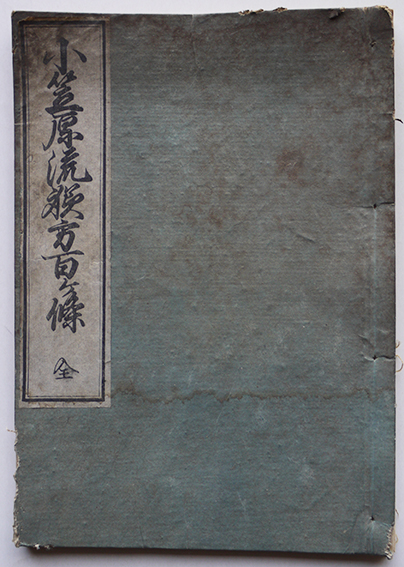 小笠原流躾方百ヶ條 全